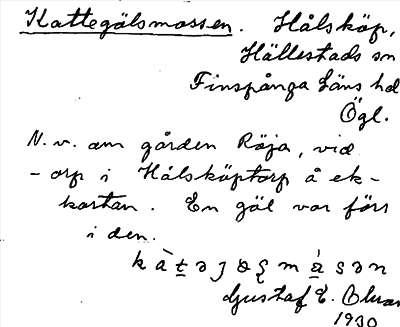 Kattegölsmossen. Hålsköp,
Hällestads sn
Finspånga läns hd
Ögl.
N.v. om gården Röja, vid
-orp i Hålsköptorp å ek-
kartan. En göl var förr
i den.
Gustaf E.
1930